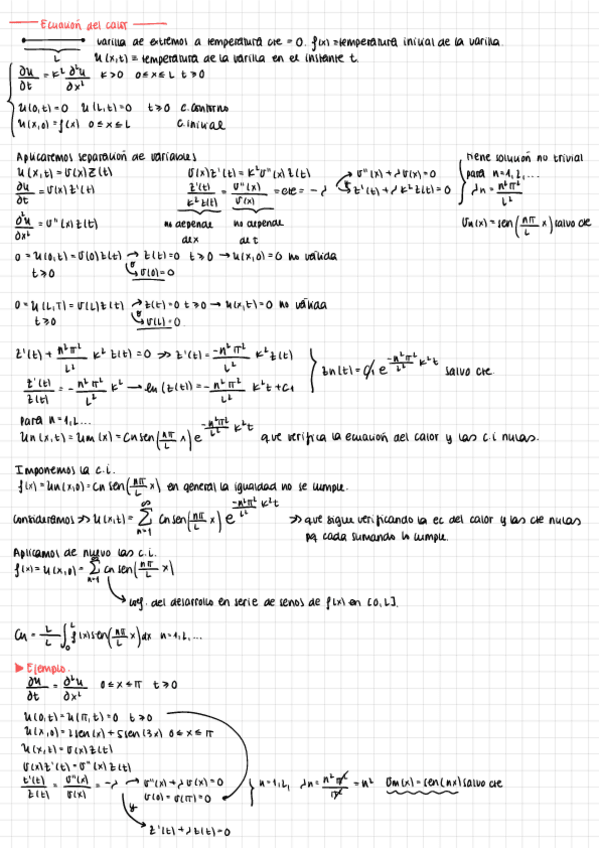 Ecuación del calor
varilla de extremos a temperatura cte = 0. f(x) = temperatura inicial de la varilla.
L
u(x,t) = temperatura de la varilla en el instante t.
∂u/∂t = k² ∂²u/∂x² k>0 0≤x≤L t≥0
u(0,t)=0 u(L,t)=0 t≥0 c.contorno
u(x,0)=f(x) 0≤x≤L c.inicial
Aplicaremos separación de variables
u(x,t) = v(x)z(t)
∂u/∂t = v(x)z'(t)
∂²u/∂x² = v''(x)z(t)
v(x)z'(t) = k²v''(x)z(t)
z'(t)/k²z(t) = v''(x)/v(x) = cte = -λ
no depende de x
no depende de t
v''(x)+λv(x)=0
z'(t)+λk²z(t)=0
tiene solución no trivial
para n=1,2,...
λn = n²π²/L²
vn(x) = sen(nπ/L x) salvo cte
0 = u(0,t) = v(0)z(t) → z(t)=0 t≥0 → u(x,0)=0 no válida
t≥0 o v(0)=0
0 = u(L,T) = v(L)z(t) → z(t)=0 t≥0 → u(x,t)=0 no válida
t≥0 o v(L)=0
z'(t) + n²π²/L² k² z(t) = 0 => z'(t) = -n²π²/L² k² z(t)
z'(t)/z(t) = -n²π²/L² k² → ln(z(t)) = -n²π²/L² k²t + C1
zn(t) = C1 e^(-n²π²/L² k²t) salvo cte.
Para n=1,2...
un(x,t) = um(x) = cn sen(nπ/L x) e^(-n²π²/L² k²t) que verifica la ecuación del calor y las c.i nulas.
Imponemos la c.i.
f(x) = un(x,0) = cn sen(nπ/L x) en general la igualdad no se cumple.
Consideramos => u(x,t) = ∞ Σ n=1 cn sen(nπ/L x) e^(-n²π²/L² k²t) => que sigue verificando la ec del calor y las cte nulas
pq cada sumando lo cumple.
Aplicamos de nuevo las c.i.
f(x) = u(x,0) = ∞ Σ n=1 cn sen(nπ/L x)
coef. del desarrollo en serie de senos de f(x) en [0,L].
Cn = 2/L ∫₀ᴸ f(x)sen(nπ/L x)dx n=1,2,...
▶ Ejemplo.
∂u/∂t = ∂²u/∂x² 0≤x≤π t≥0
u(0,t)=u(π,t)=0 t≥0
u(x,0) = 2sen(x)+5sen(3x) 0≤x≤π
u(x,t) = v(x)z(t)
v(x)z'(t) = v''(x)z(t)
z'(t)/z(t) = v''(x)/v(x) = -λ → v''(x)+λv(x)=0
v(0)=v(π)=0
n=1,2, λn = n²π²/π² = n² vm(x) = sen(nx) salvo cte
y
z'(t)+λz(t)=0